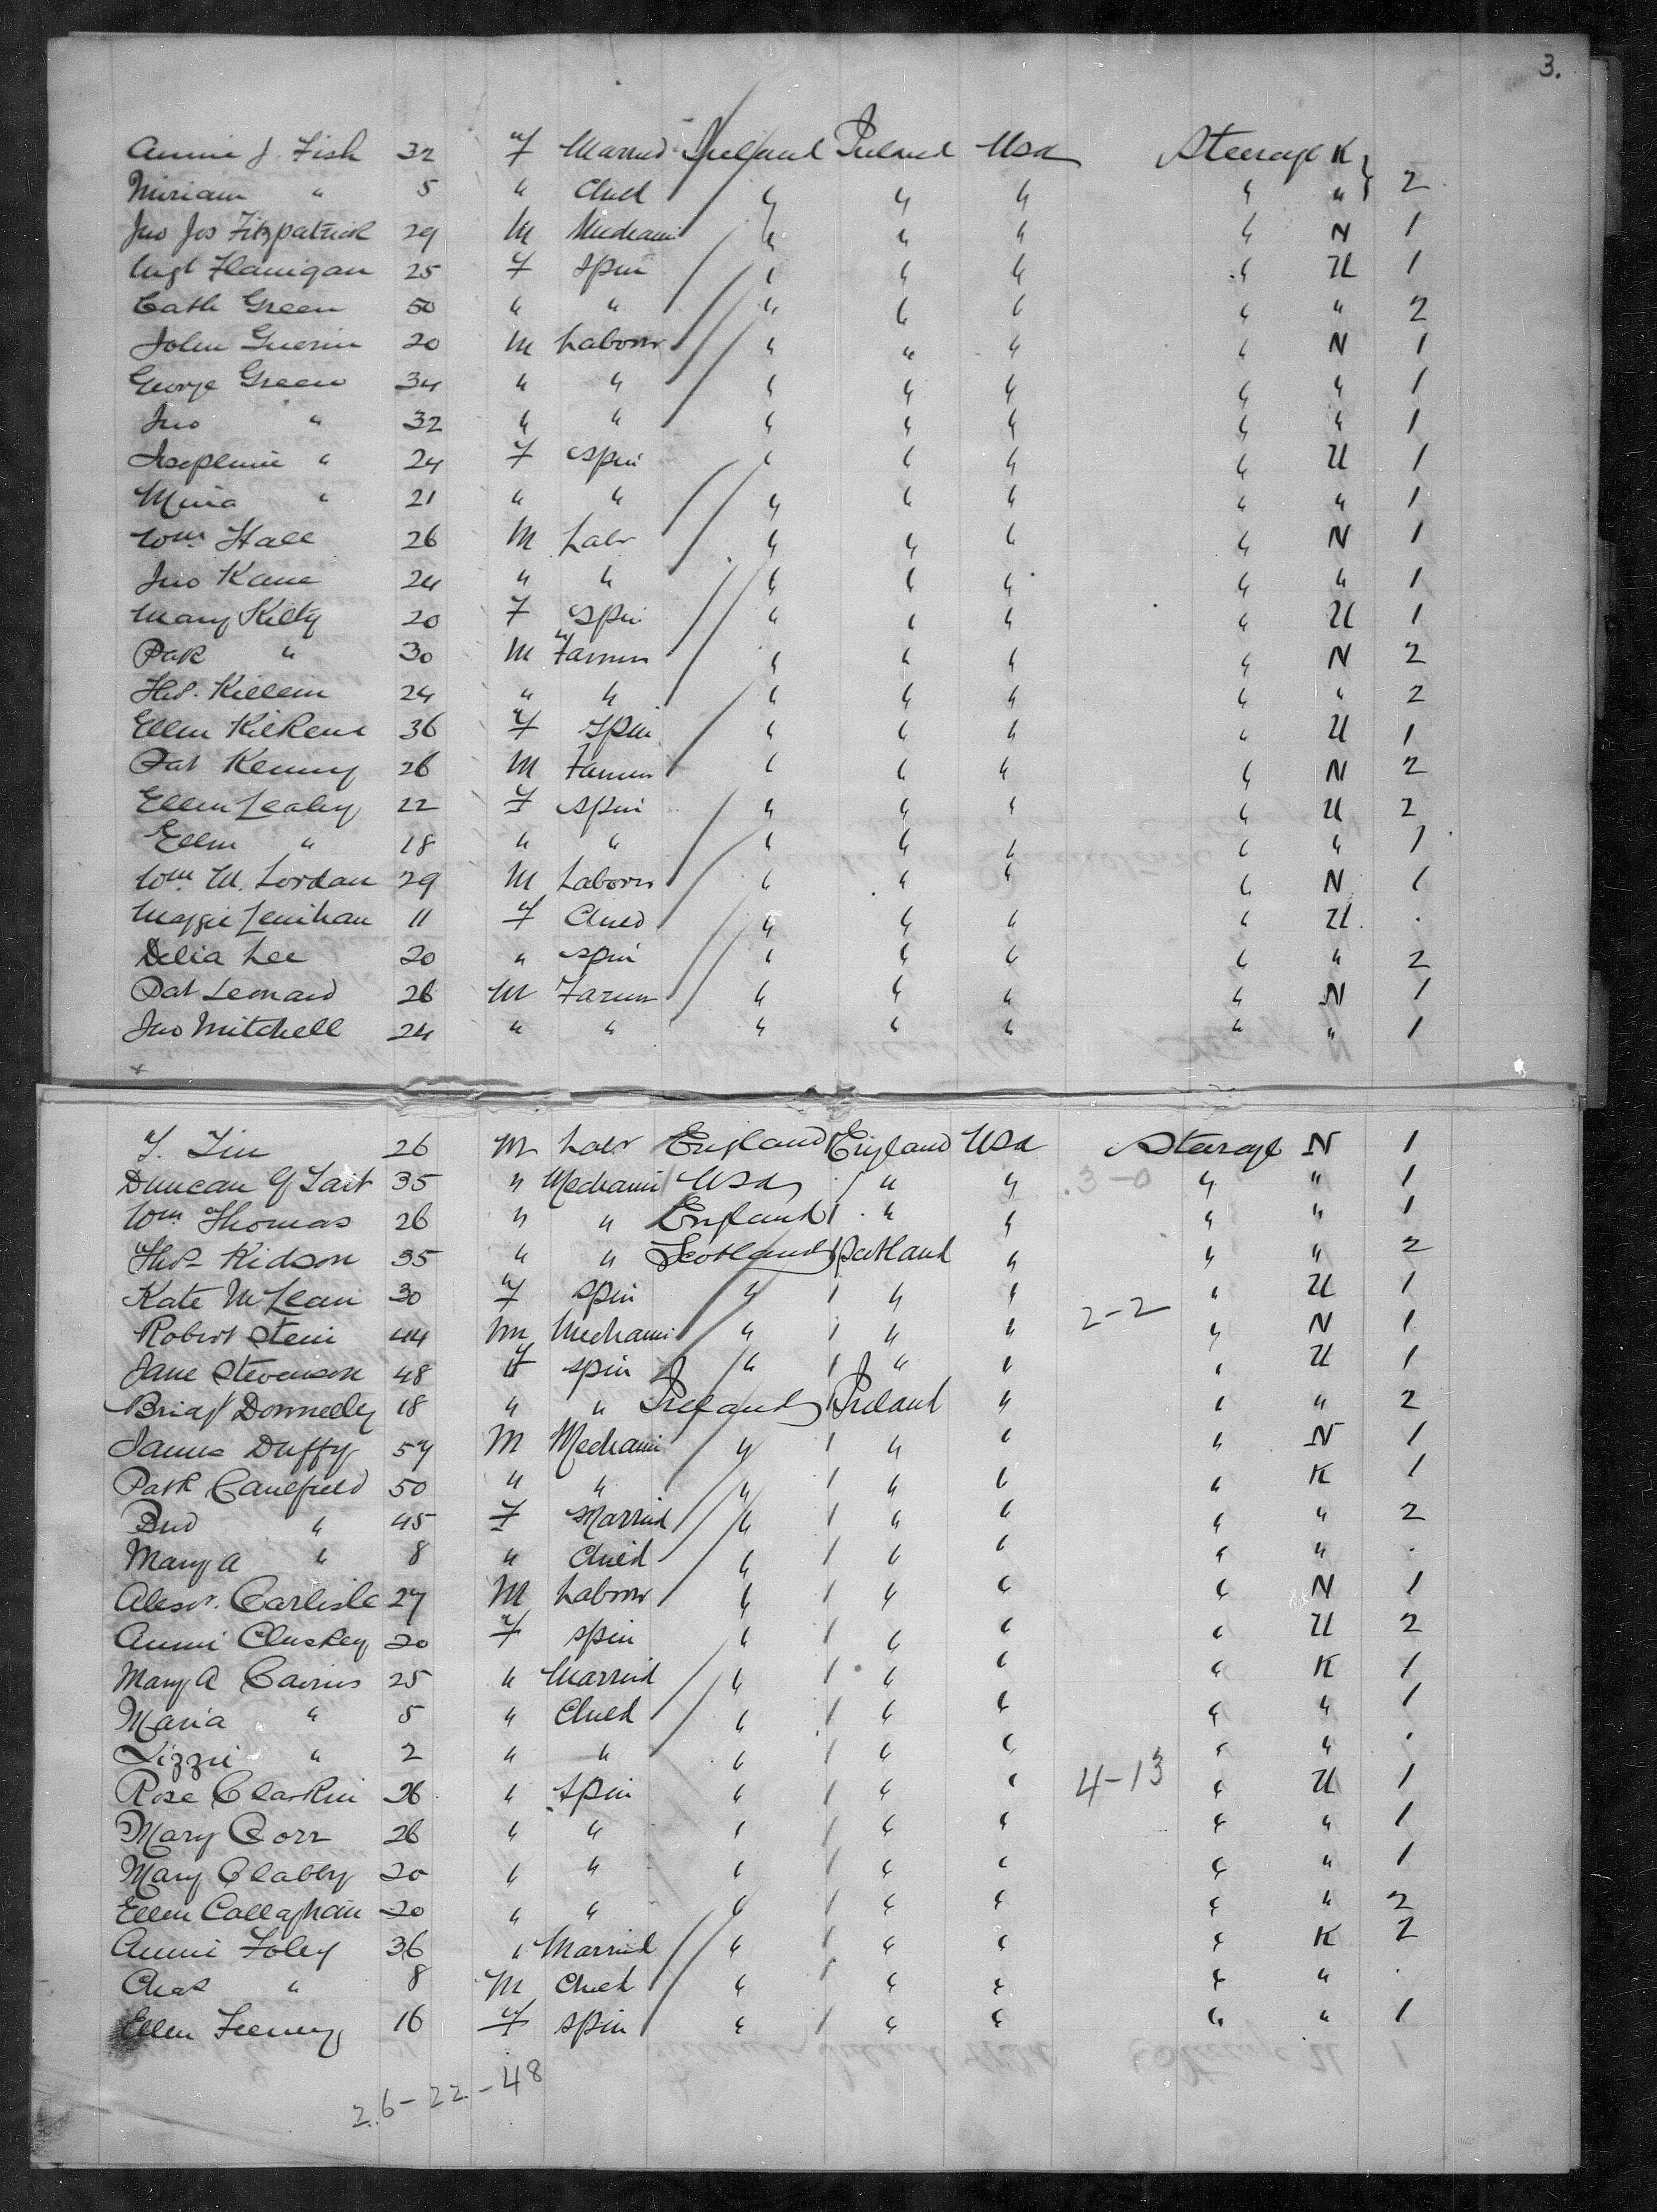 3.
Annie J. Fish 32 F Married Ireland Ireland Usa Steerage K
Miriam " 5 " Child " " " " " 2
Jno Jos Fitzpatrick 29 M Mechani " " " " N 1
Mgt Flanigan 25 F Spin " " " " U 1
Cath Green 50 " " " " " " " 2
John Guerin 20 M Labour " " " " N 1
George Green 34 " " " " " " " 1
Jno " 32 " " " " " " " 1
Josephine " 24 F Spin " " " " U 1
Mina " 21 " " " " " " " 1
Wm. Hall 26 M Labr " " " " N 1
Jno Kane 24 " " " " " " " 1
Mary Kilty 20 F Spin " " " " U 1
Patk " 30 M Farmer " " " " N 2
Thos. Killeen 24 " " " " " " " 2
Ellen Kilkene 36 F Spin " " " " U 1
Pat Kenny 26 M Farmer " " " " N 2
Ellen Leahy 22 F Spin " " " " U 2
Ellen " 18 " " " " " " " 1
Wm. M. Lordan 29 M Labour " " " " N 1
Maggie Lenihan 11 F Child " " " " U .
Delia Lee 20 " Spin " " " " " 2
Pat Leonard 26 M Farmer " " " " N 1
Jno Mitchell 24 " " " " " " " 1
26 M Labr England England Usa Steerage N 1
Duncan G Tait 35 " Mechani Usa " " 3-0 " " 1
Wm. Thomas 26 " " England " " " " 1
Thos Kidson 35 " " Scotland Scotland " " " 2
Kate McLean 30 F Spin " " " " U 1
Robert Stein 44 M Mechani " " " 2-2 " N 1
Jane Stevenson 48 F Spin " " " " U 1
Bridgt Donnelly 18 " " Ireland Ireland " " " 2
James Duffy 57 M Mechani " " " " N 1
Patk Caulfield 50 " " " " " " K 1
Bid " 45 F Married " " " " " 2
Mary A " 8 " Child " " " " " .
Alexr. Carlisle 27 M Labour " " " " N 1
Annie Cluskey 20 F Spin " " " " U 2
Mary A Cairns 25 " Married " " " " K 1
Maria " 5 " Child " " " " " 1
Lizzie " 2 " " " " " " " .
Rose Clarkin 26 " Spin " " " 4-13 " U 1
Mary Corr 26 " " " " " " " 1
Mary Clabby 20 " " " " " " " 1
Ellen Callaghan 20 " " " " " " " 2
Annie Foley 36 " Married " " " " K 2
Chas " 8 M Child " " " " " .
Ellen Feeney 16 F Spin " " " " " 1
26-22-48